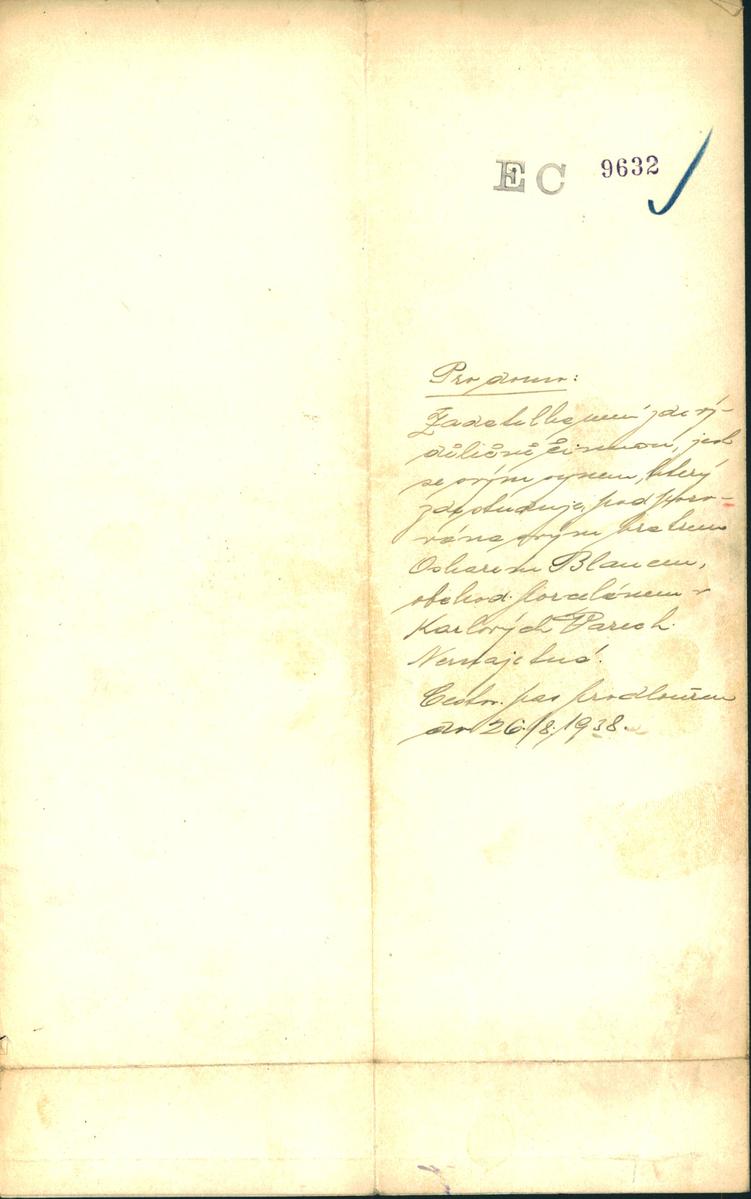 EC 9632
Pro domo:
Žadatelka není zde vý-
dělečně činnou, jest
se svým synem, který
zde studuje, podporo-
vána svým bratrem
Oskarem Blauem,
obchod. porcelánem v
Karlových Varech.
Nemajetná.
Cestov. pas prodloužen
do 26./8. 1938.